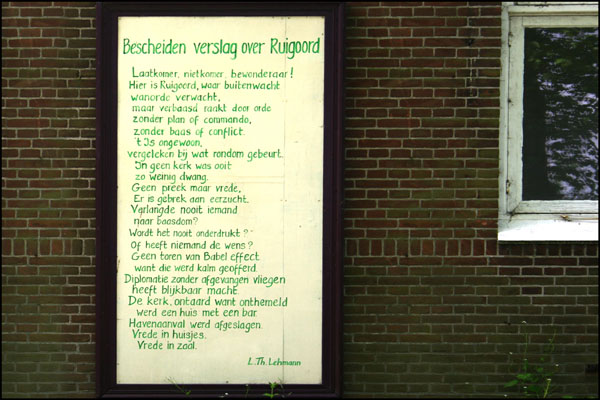 Bescheiden verslag over Ruigoord
Laatkomer, nietkomer, bewonderaar!
Hier is Ruigoord, waar buitenwacht
wanorde verwacht,
maar verbaasd raakt door orde
zonder plan of commando,
zonder baas of conflict.
't Is ongewoon,
vergeleken bij wat rondom gebeurt.
In geen kerk was ooit
zo weinig dwang.
Geen preek maar vrede,
Er is gebrek aan eerzucht.
Verlangde nooit iemand
naar baasdom?
Wordt het nooit onderdrukt?
Of heeft niemand de wens?
Geen toren van Babel effect
want die werd kalm geofferd.
Diplomatie zonder afgevangen vliegen
heeft blijkbaar macht.
De kerk, ontaard want onthemeld
werd een huis met een bar.
Havenaanval werd afgeslagen.
Vrede in huisjes.
Vrede in zaal.
L. Th. Lehmann